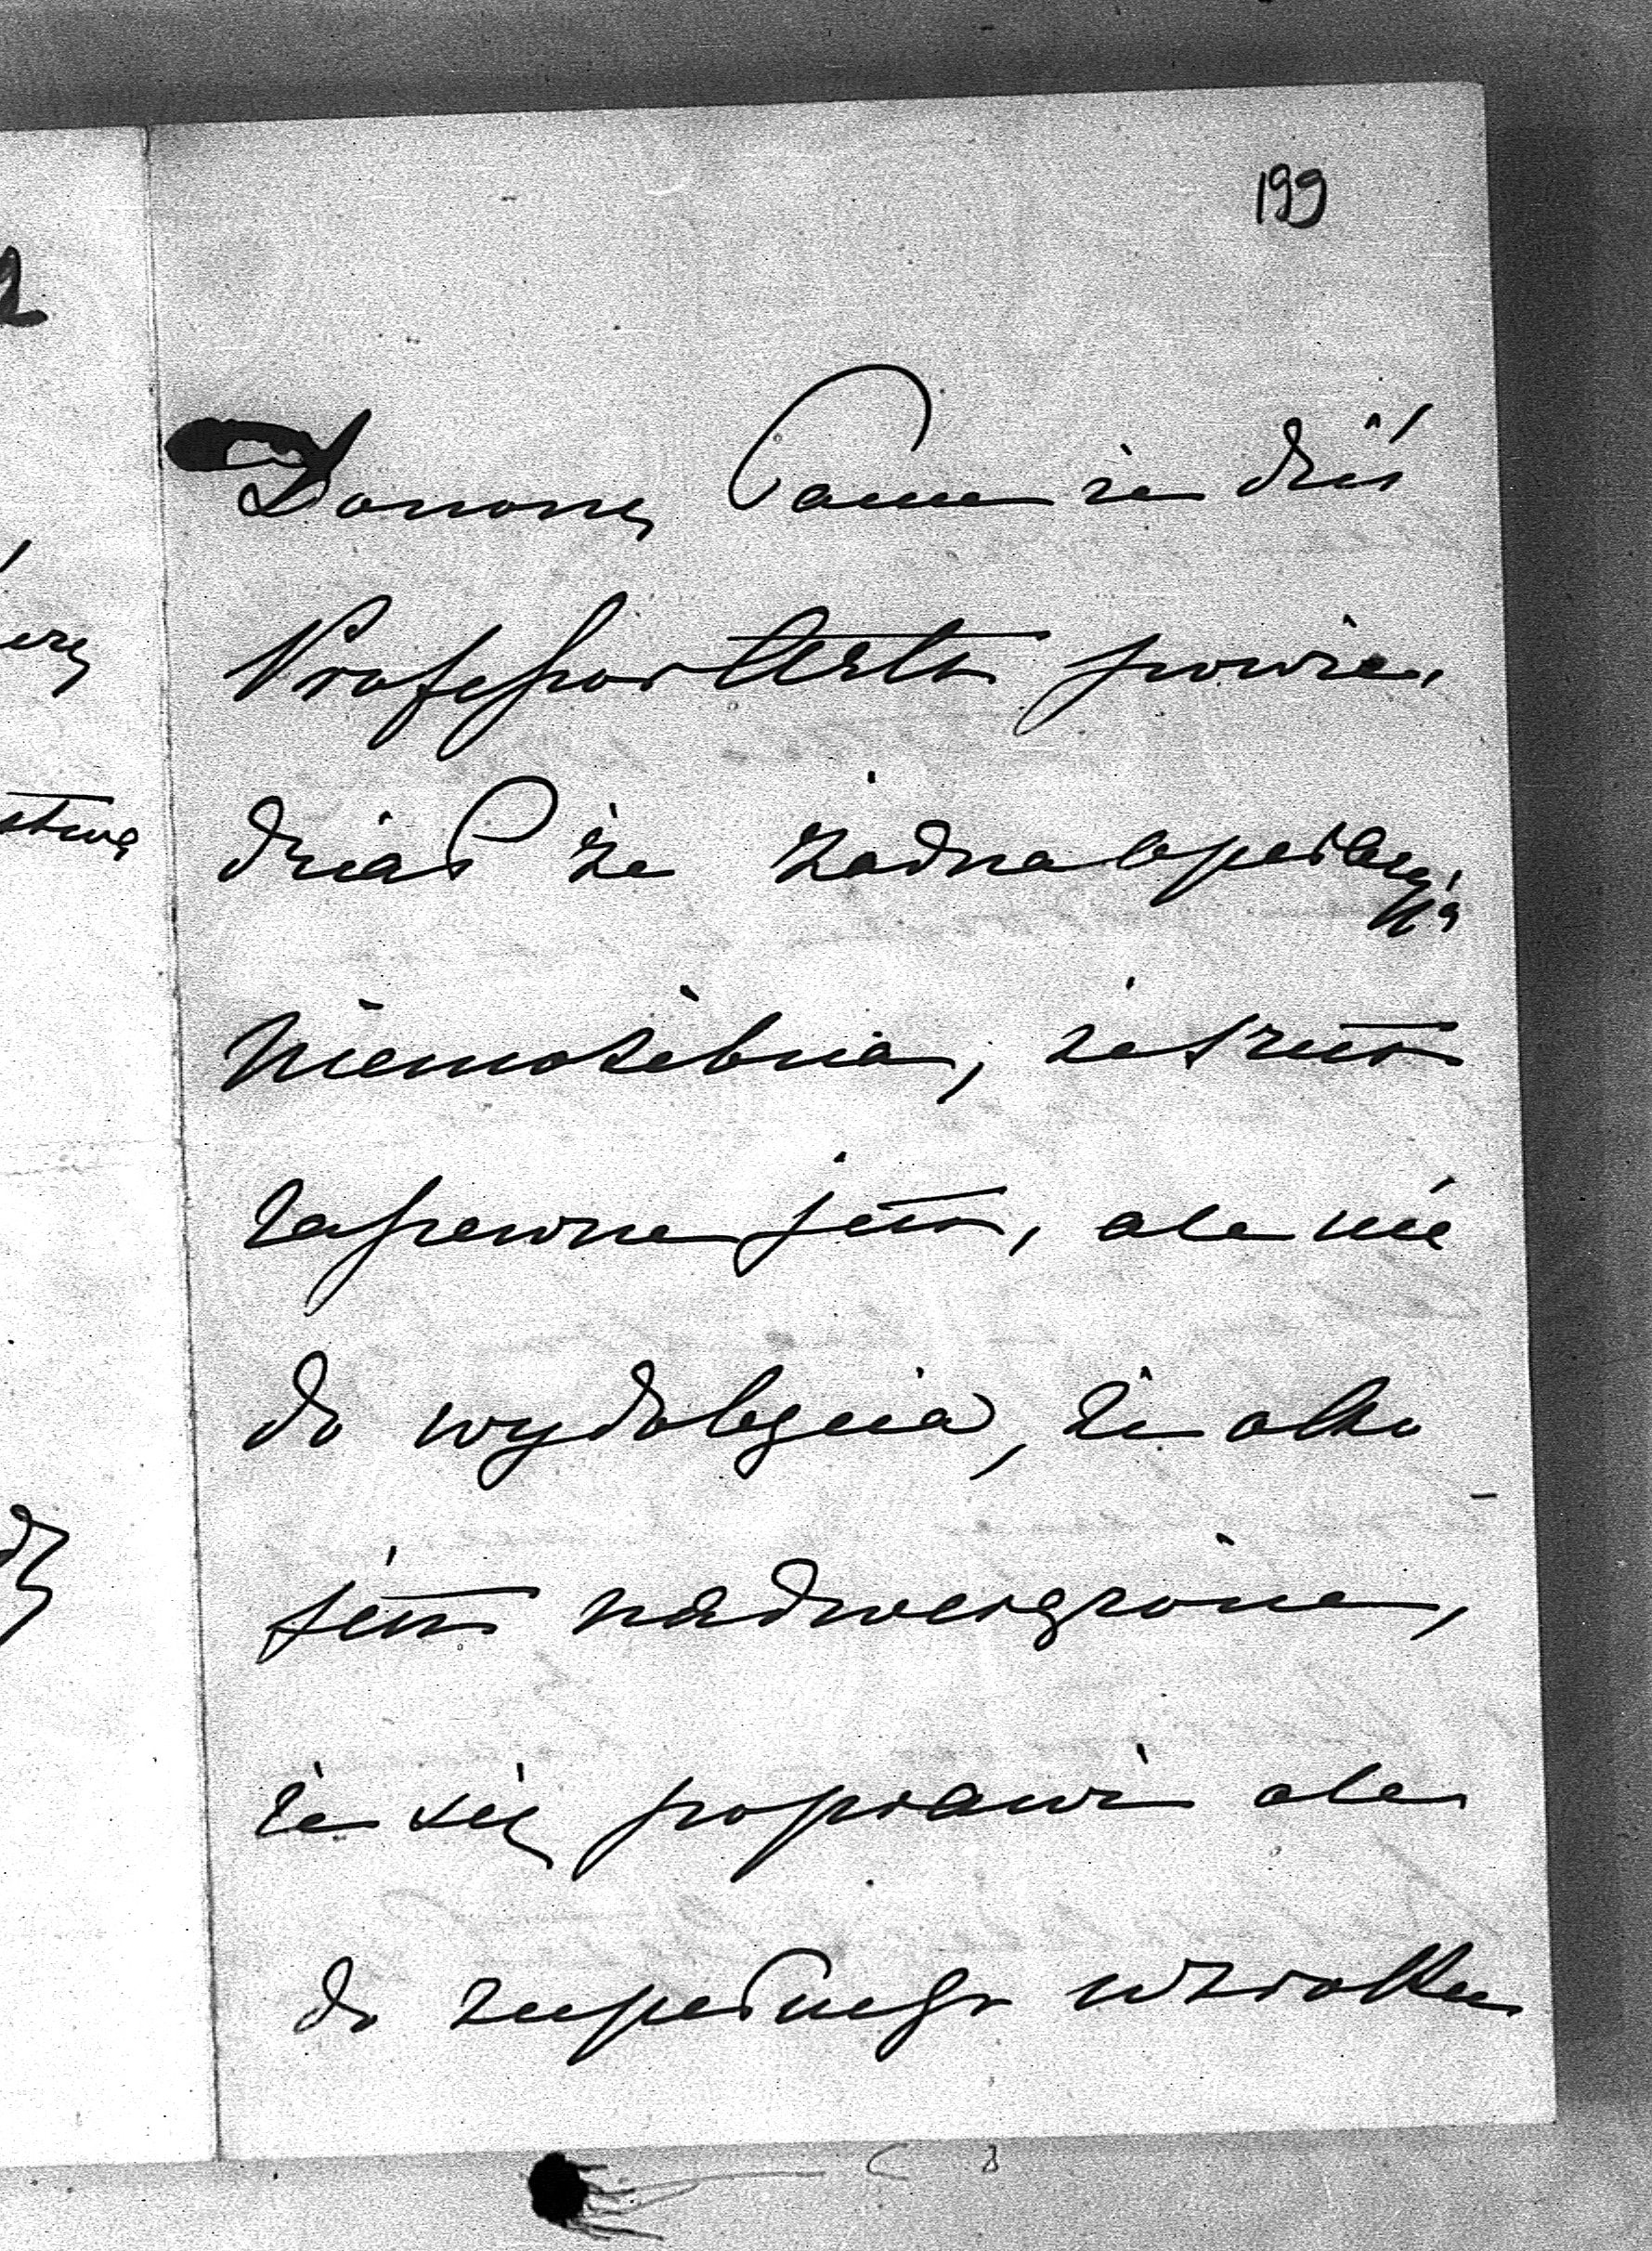 199
Donoszę Panu że dziś
Professor Arlt powie,
dział że żadna operacyja
niemożebna, że szrót
zapewne jest, ale nie
do wydobycia, że oko
jest nadwerężone,
że się poprawi ale
do zupełnego wzroku